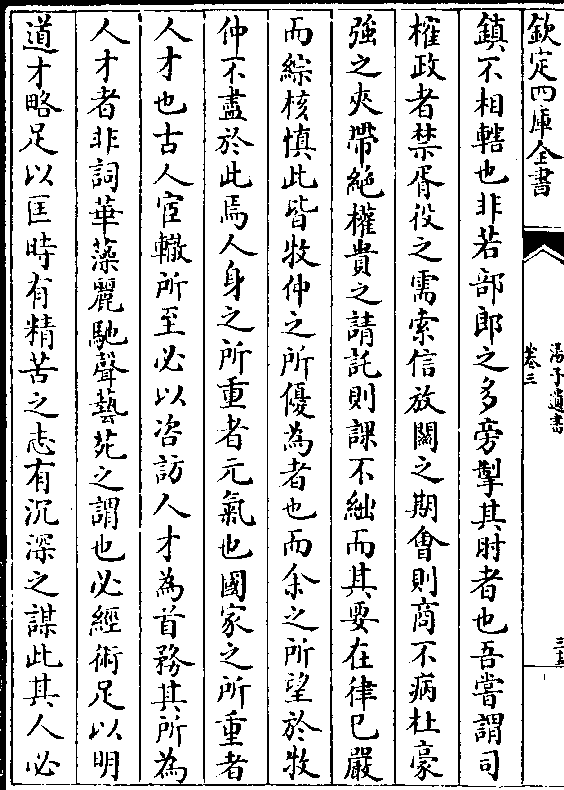 欽定四庫全書
湯子遺書
卷三
鎮不相轄也非若部郎之多旁掣其肘者也吾嘗謂司
榷政者禁胥役之需索信放關之期會則商不病杜豪
強之夾帶絕權貴之請託則課不絀而其要在律已嚴
而綜核慎此皆牧仲之所優為者也而余之所望於牧
仲不盡於此焉人身之所重者元氣也國家之所重者
人才也古人宦轍所至必以咨訪人才為首務其所為
人才者非詞華藻麗馳聲藝苑之謂也必經術足以明
道才略足以匡時有精苦之志有沉深之謀此其人必